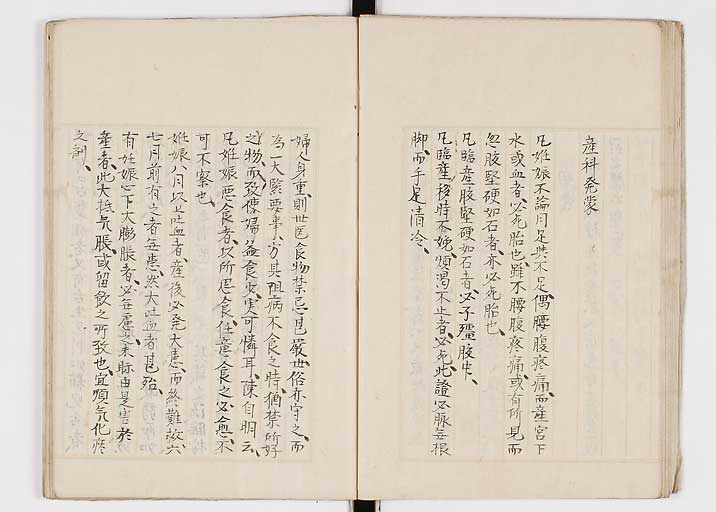 産科発蒙
凡姙娠不論月足與不足偶腰腹疼痛而産宮下
水或血者必死胎也雖不腰腹疼痛或有所見而
忽腹堅硬如石者亦必死胎也
凡臨産腹堅硬如石者必子殪腹中
凡臨産移時不娩煩渇不止者必死此證必脉無根
脚而手足清冷
婦人身重則世医食物禁忌甚厳世俗亦守之而
為一大緊要事方其阻病不食之時猶禁所好
之物而致儜婦益食少実可憐耳陳自明云
凡姙娠悪食者以所思食任意食之必愈不
可不察也
姙娠八月以上吐血者産後必発大患而終難救六
七月前有之者無患然大吐血者甚殆
有妊娠心下大膨脹者必無慮
産者此大抵気脹或留飲之所致也宜順気化痰
之剤